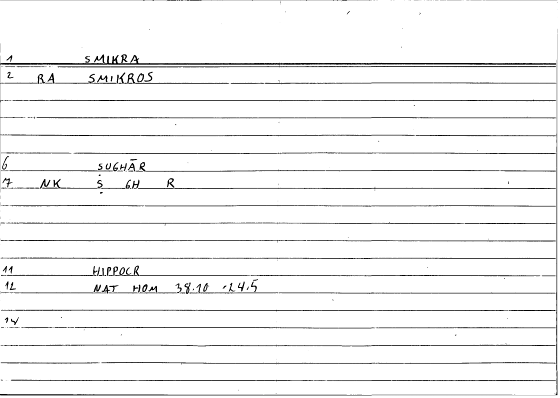 1 SMIKRA
2 RA SMIKROS
6 ṢUGHĀR
7 NK Ṣ GH R
11 HIPPOCR
12 NAT HOM 38.10 -24.5
14